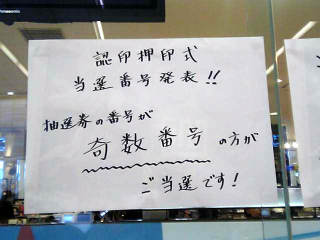 認印押印式
当選番号発表!!
抽選券の番号が
奇数番号の方が
ご当選です!